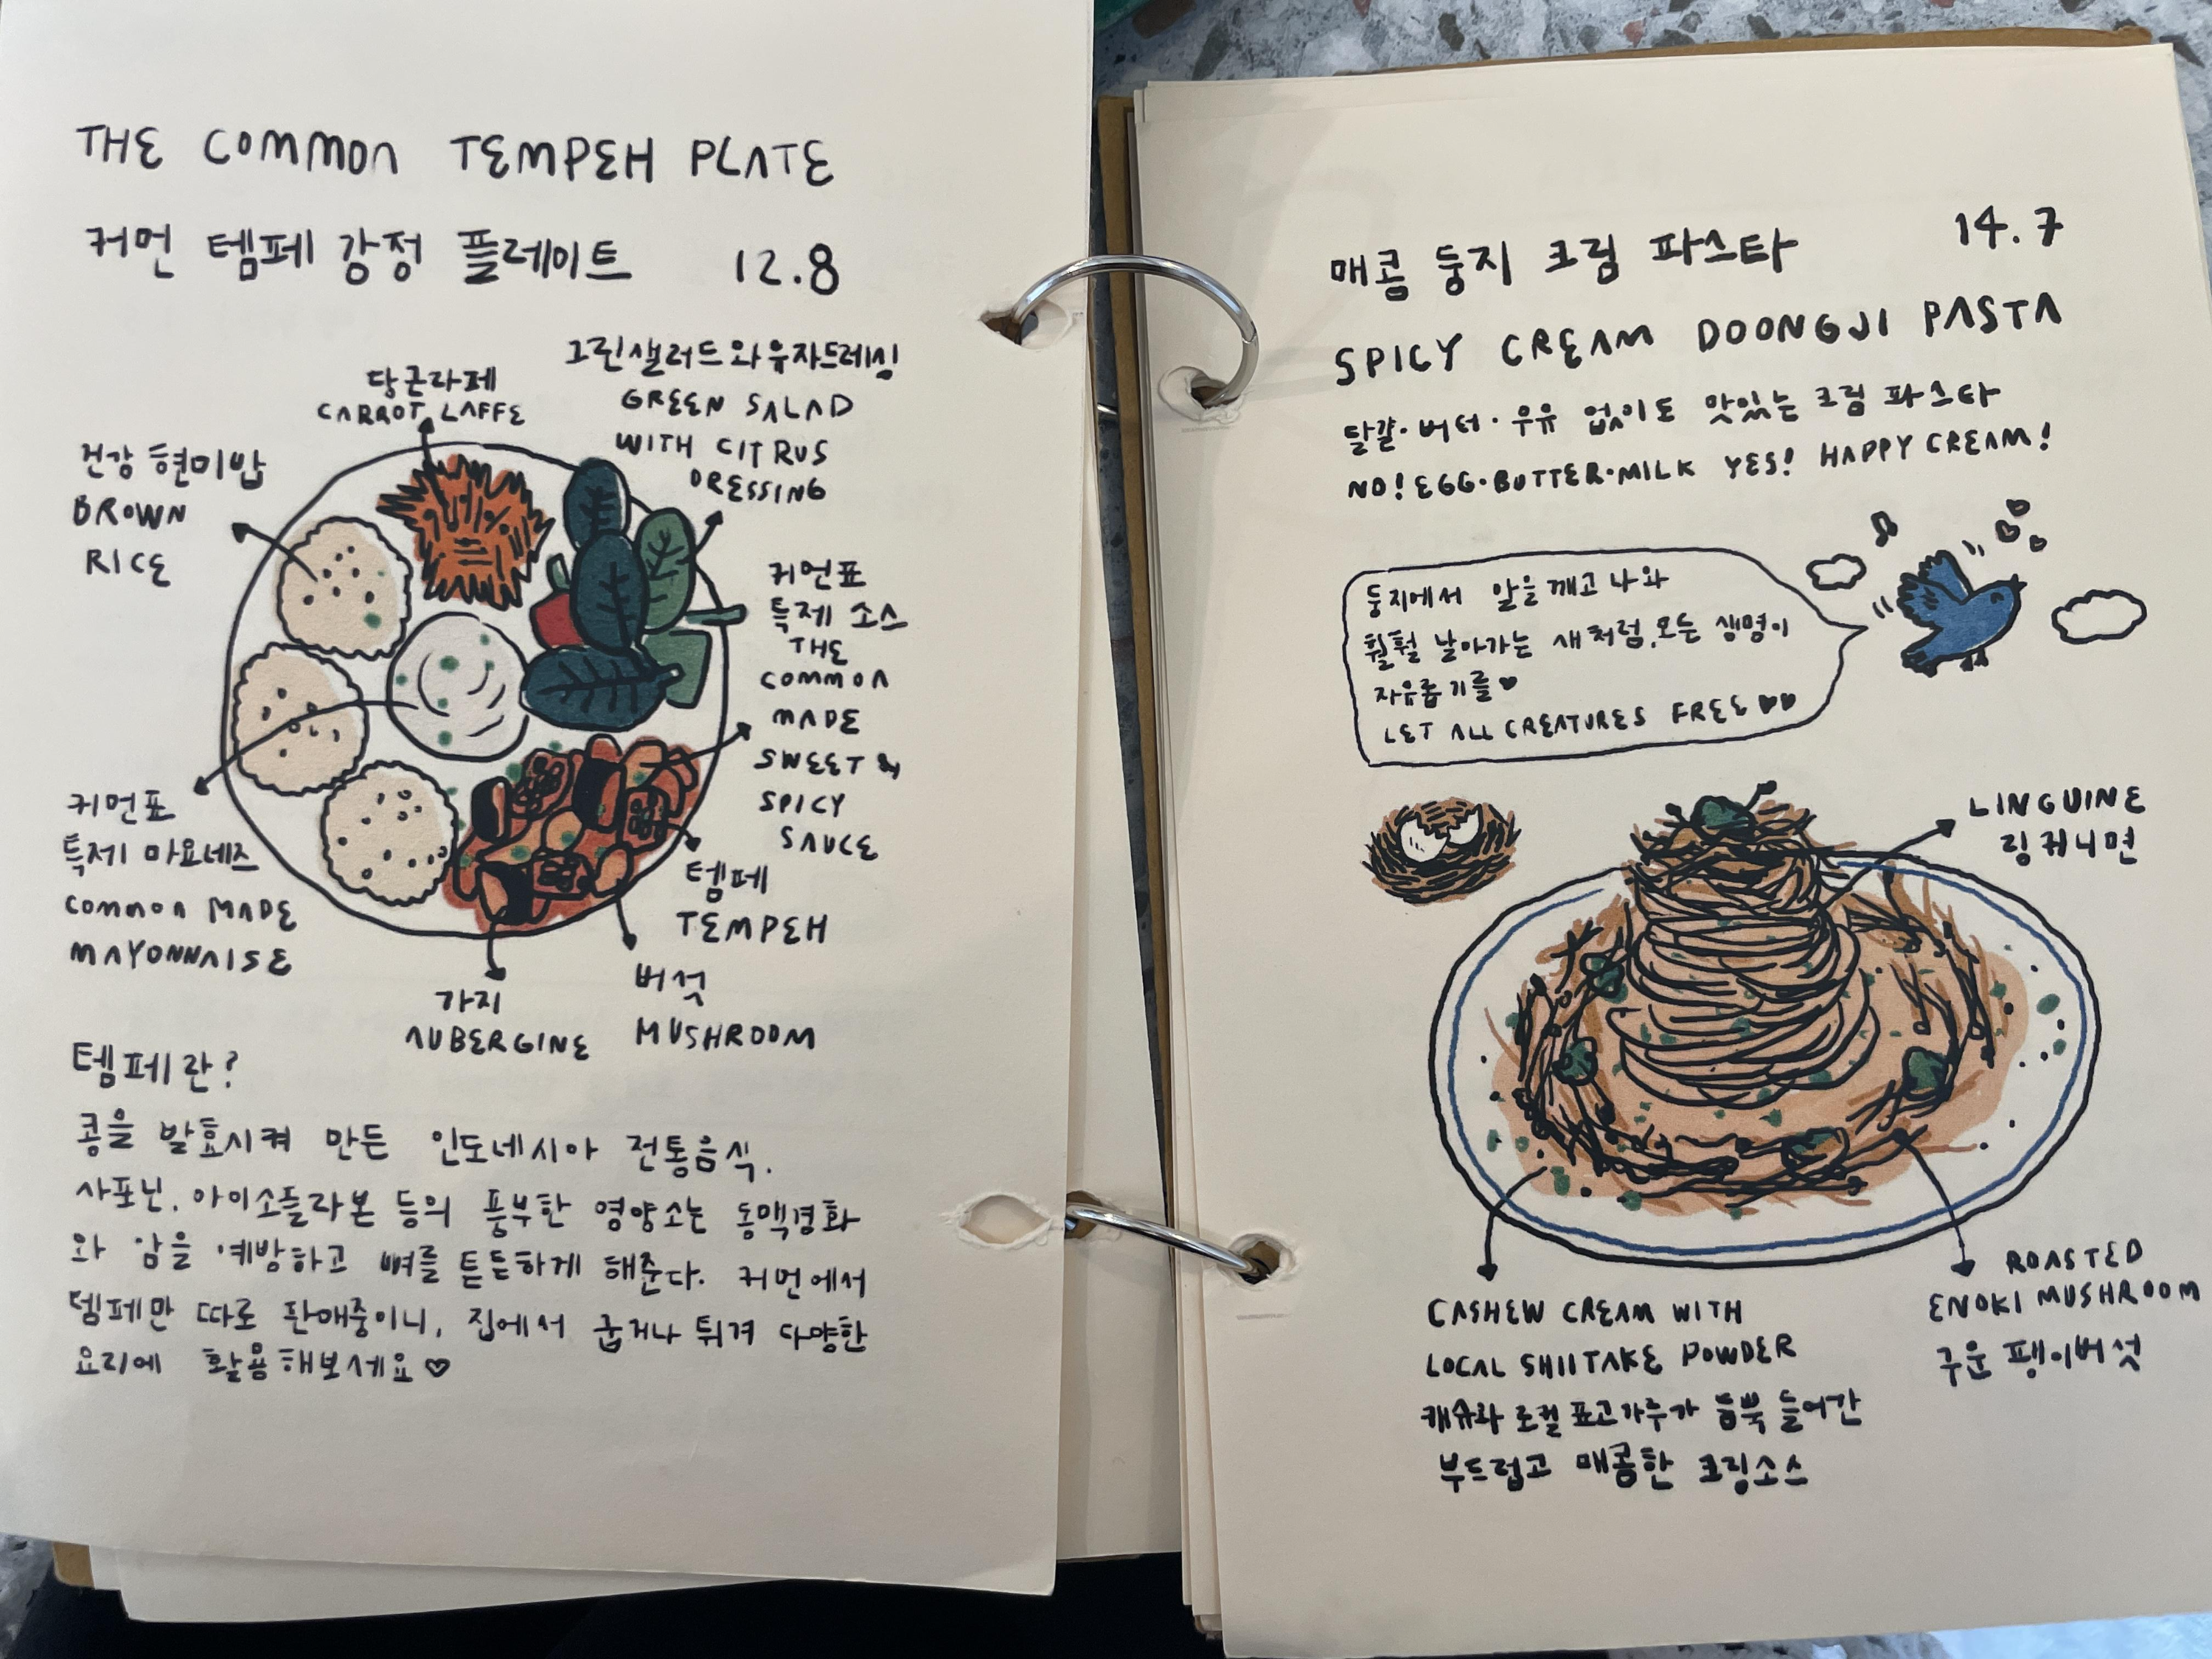 THE COMMON TEMPEH PLATE
커먼 템페 강정 플레이트 12.8
당근라페
CARROT LAFFE
그린샐러드와유자드레싱
GREEN SALAD
WITH CITRUS
DRESSING
건강 현미밥
BROWN
RICE
커먼표
특제 소스
THE
COMMON
MADE
SWEET &
SPICY
SAUCE
커먼표
특제 마요네즈
COMMON MADE
MAYONNAISE
템페
TEMPEH
버섯
MUSHROOM
가지
AUBERGINE
템페란?
콩을 발효시켜 만든 인도네시아 전통음식.
사포닌, 아이소플라본 등의 풍부한 영양소는 동맥경화
와 암을 예방하고 뼈를 튼튼하게 해준다. 커먼에서
템페만 따로 판매중이니, 집에서 굽거나 튀겨 다양한
요리에 활용해보세요♡
매콤 둥지 크림 파스타 14.7
SPICY CREAM DOONGJI PASTA
달걀·버터·우유 없이도 맛있는 크림 파스타
NO! EGG·BUTTER·MILK YES! HAPPY CREAM!
둥지에서 알을 깨고 나와
훨훨 날아가는 새처럼, 모든 생명이
자유롭기를♥
LET ALL CREATURES FREE♥♥
LINGUINE
링귀니면
CASHEW CREAM WITH
LOCAL SHIITAKE POWDER
캐슈와 로컬 표고가루가 듬뿍 들어간
부드럽고 매콤한 크림소스
ROASTED
ENOKI MUSHROOM
구운 팽이버섯